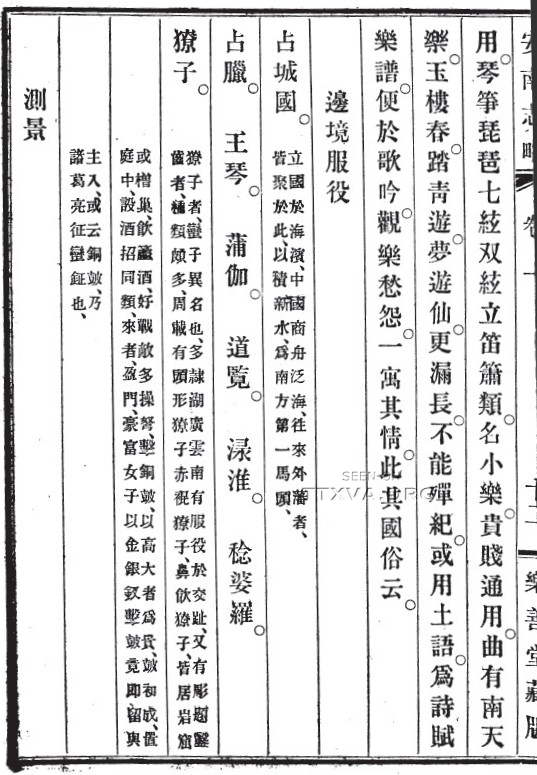 安南志略 卷一 十二 樂善堂藏版
用。琴箏琵琶七絃双絃立笛簫類。名小樂。貴賤通用。曲有南天
樂。玉樓春。踏青遊。夢遊仙。更漏長。不能殫紀。或用土語。爲詩賦
樂譜。便於歌吟。觀樂愁怨。一寓其情。此其國俗云。
邊境服役
占城國。立國於海濱、中國商舟泛海、往來外藩者、
皆聚於此、以積新水、爲南方第一馬頭、
占臘。 王琴。 蒲伽。 道覽。 淥淮。 稔婆羅。
獠子。獠子者、蠻子異名也、多隷湖廣雲南、有服役於交趾、又有彫題鑿
齒者、種類頗多、周載有頭形獠子赤裩獠子、鼻飲獠子、皆居岩窟
或橧巢、飲蘆酒、好戰敵多操弩、擊銅皷、以高大者爲貴、皷初成、置
庭中、設酒招同類、來者、盈門、豪富女子以金銀釵擊皷竟即留與
主人、或云銅皷、乃
諸葛亮征蠻鉦也、
測景
SEEN ON
TTXVA.ORG